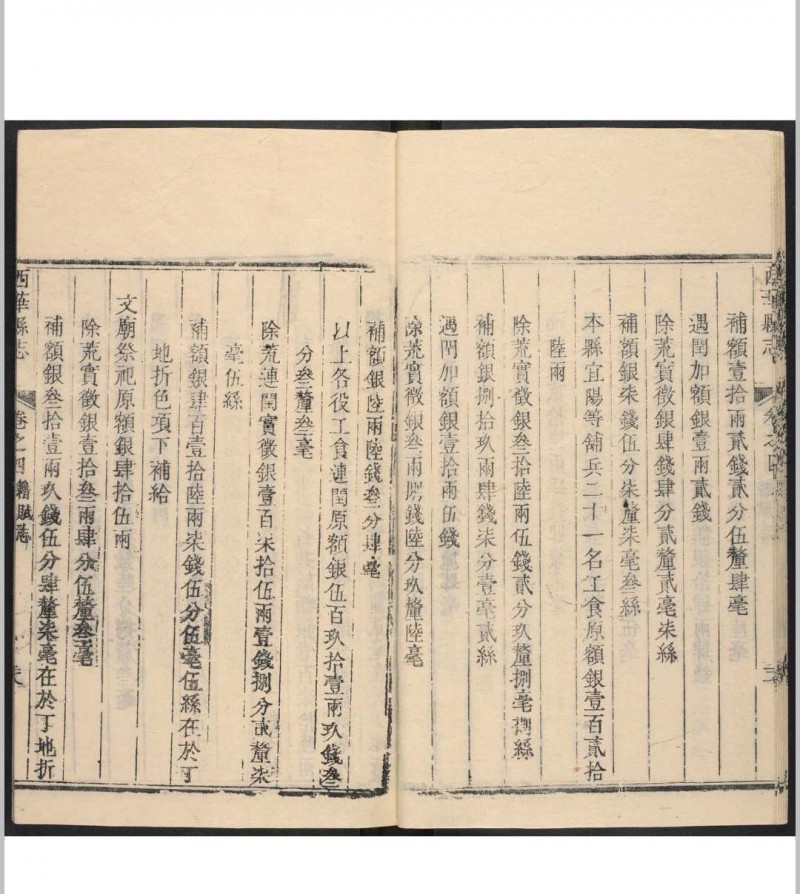 西華縣志
補額壹拾兩貳錢貳分伍釐肆毫
遇閏加額銀壹兩貳錢
除荒實徵銀肆錢肆分貳釐貳毫柒絲
補額銀柒錢伍分柒釐柒毫叁絲
本縣宜陽等舖兵二十一名工食原額銀壹百貳拾
陸兩
除荒實徵銀叁拾陸兩伍錢貳分玖釐捌毫捌絲
補額銀捌拾玖兩肆錢柒分壹毫貳絲
遇閏加額銀壹拾兩伍錢
除荒實徵銀叁兩錢陸分玖釐陸毫
補額銀陸兩陸錢叁分肆毫
以上各役工食連閏原額銀伍百玖拾壹兩玖錢叁
分叁釐叁毫
除荒連閏實徵銀壹百柒拾伍兩壹錢捌分貳釐柒
毫伍絲
補額銀肆百壹拾陸兩柒錢伍分伍毫伍絲在於丁
地折色項下補給
文廟祭祀原額銀肆拾伍兩
除荒實徵銀壹拾叁兩肆分伍釐叁毫
補額銀叁拾壹兩玖錢伍分肆釐柒毫在於丁地折
西華縣志 卷之四 籍賦志